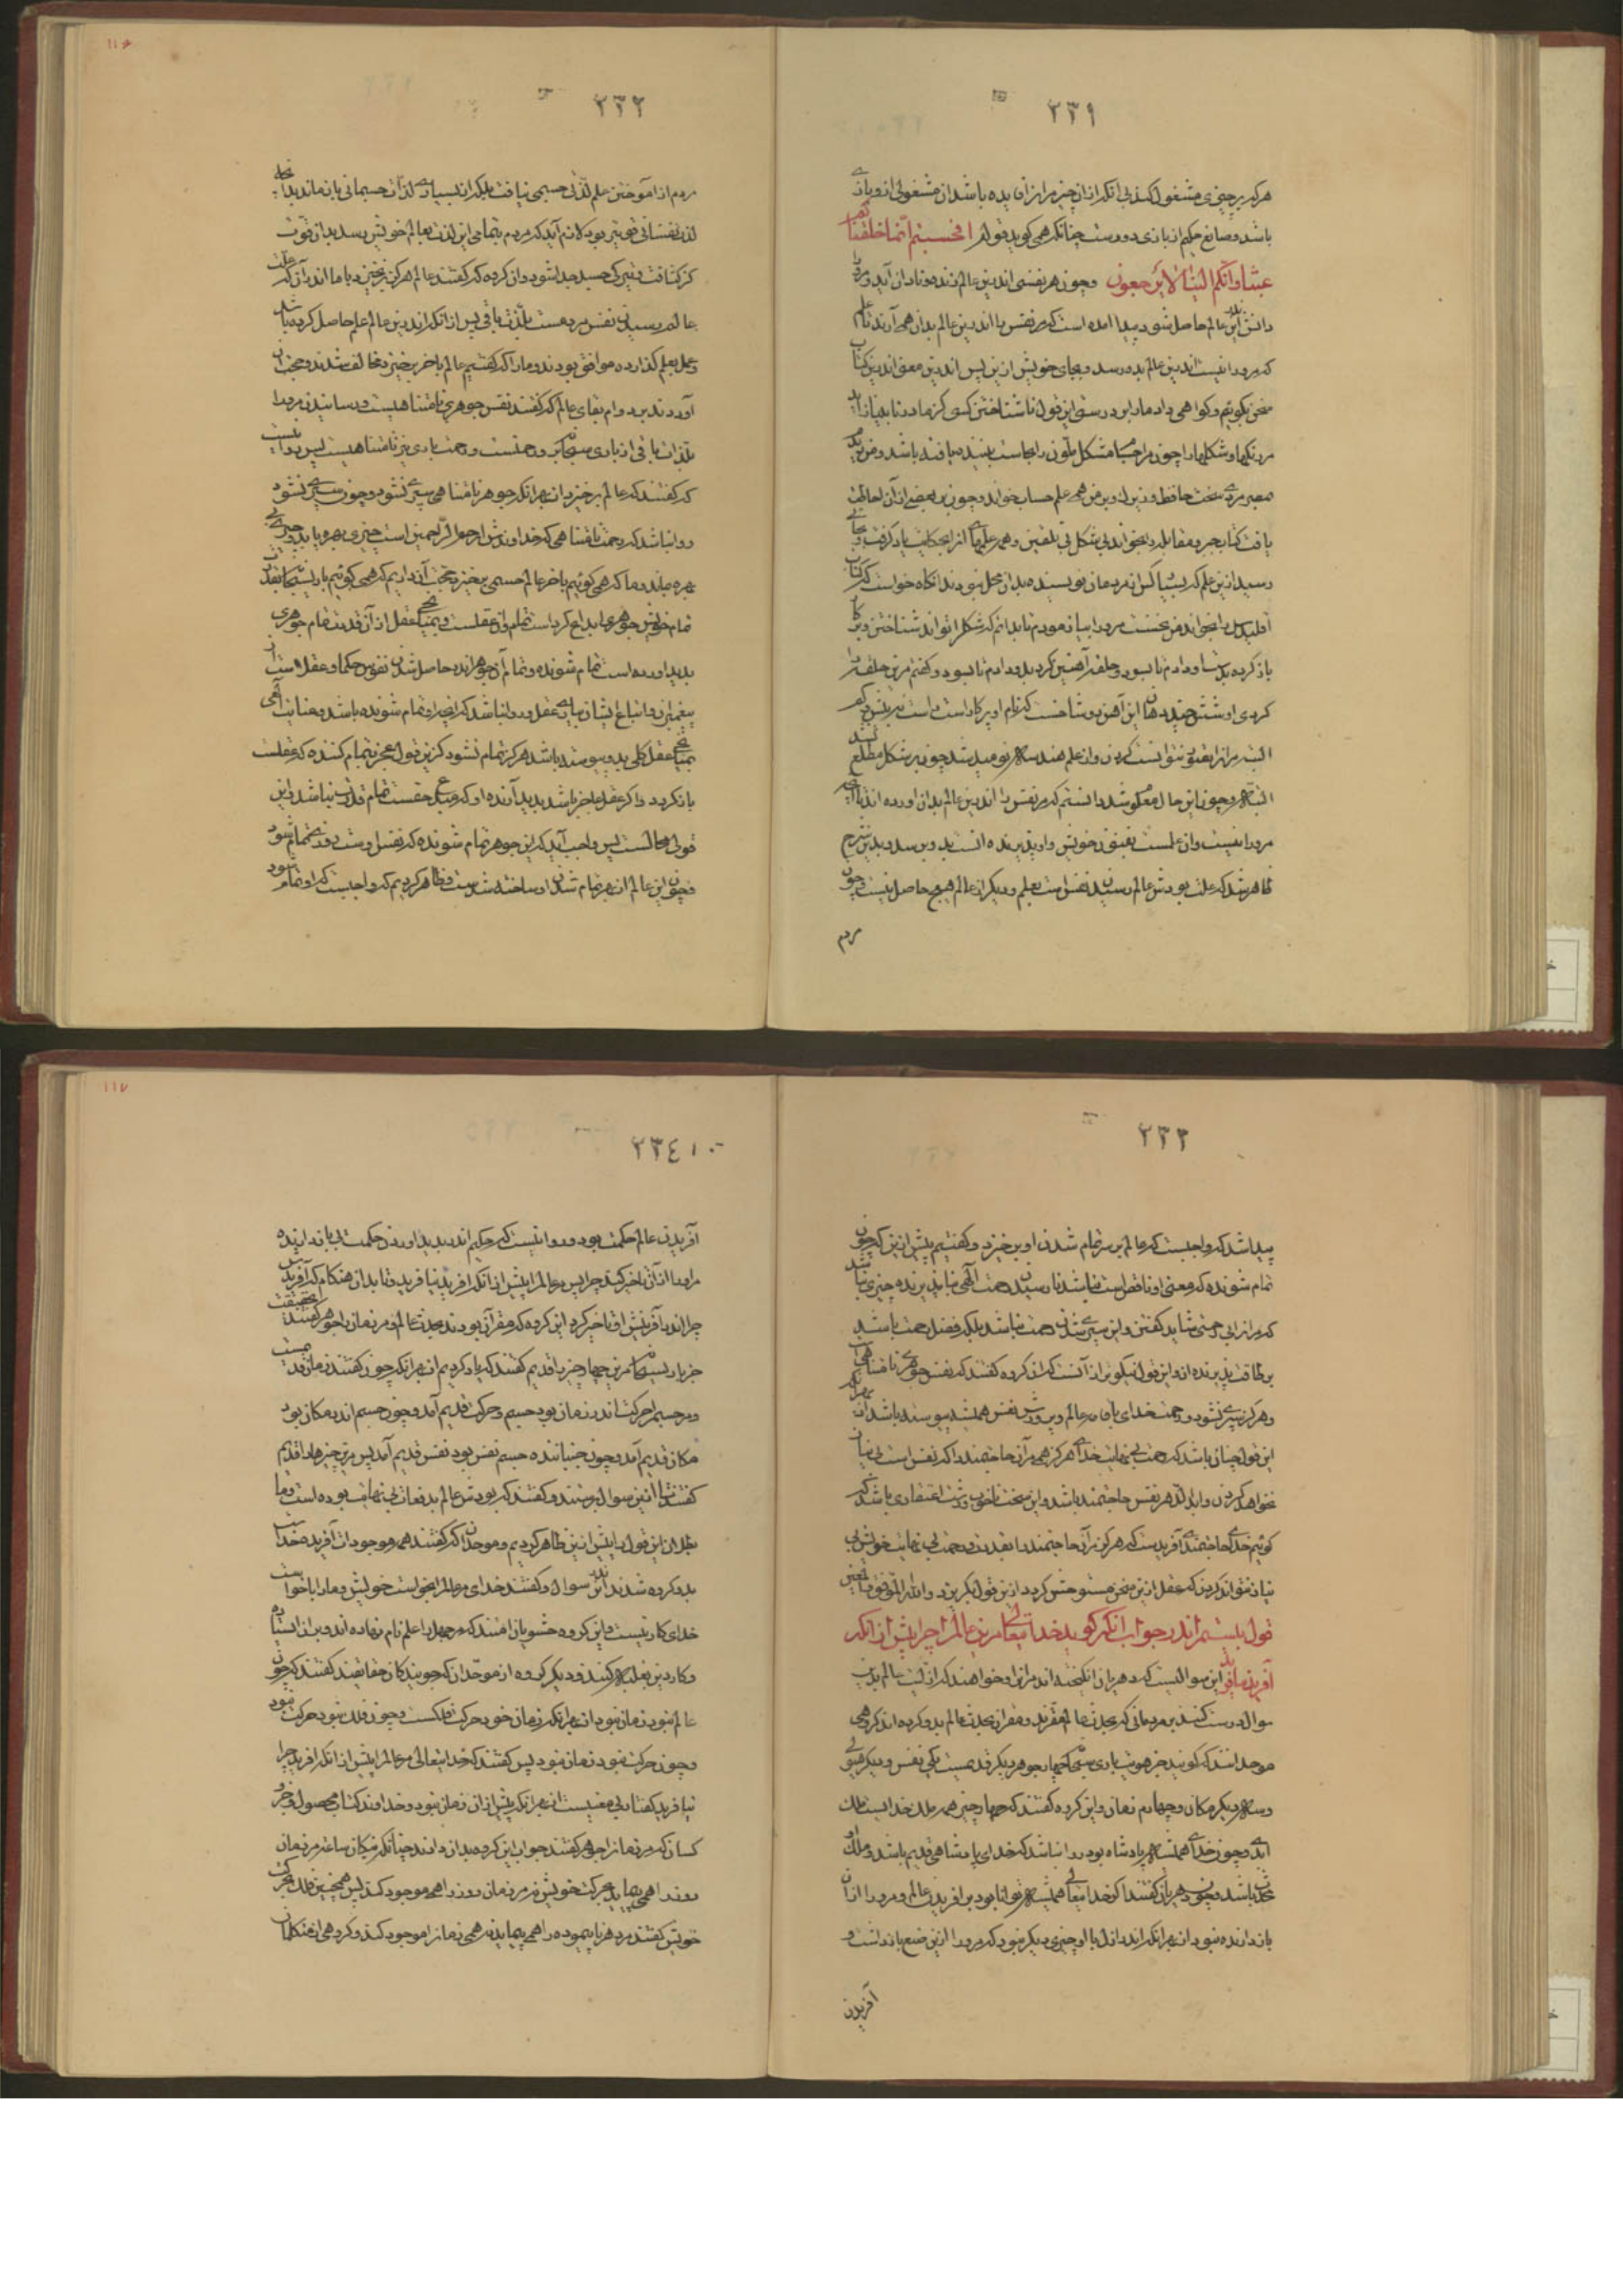 ۲۳۱
هر که بر چیزی مشغول کند بی انکه از ان چیز مر از ان بده باشد ان مشغولی از و بازی
باشد و صانع حکیم از بازی دورست چنانکه همی کوید قوله افحسبتم انّما خلقناکم
عبثا وانّکم الینا لا ترجعون و چون هر نفسی اندرین عالم زنده و نادان آید و مر
دانش اندر این عالم حاصل شود پیدا امده است که مر نفس را اندرین عالم بدان همی آرند تا علم
که مرورا نیست اندرین عالم بدو رسد و بجای خویش ازین پس اندرین معنی اندرین کتاب
سخن بکوئیم و کواهی داد ما را بر درستی این قول نا شناختن کسی کز مادر نابینا زاید
مر رنکها و شکلها را چون مر
مردی سخت حافظ و زیرک و بر من همی علم حساب خواند و چون بر بعضی از آن احاطت
یافت کتاب جبر و مقابله را بخواند بی شکل بی تلقین و همه علمها از انجایکه یاد کرفت و بجای
رسید ازین علم که بسیار کس از مردمان نویسنده بدان محل نبودند انکاه خواست که کتاب
اقلیدس را بخواند من نخست مرورا بیازمودم تا بدانم که شکل را تواند شناختن و
باز کرده بدست او دادم تا بسود و حلقه آهنین کرد بدو دادم تا بسود و کفتم مر این حلقه را
البته مر انرا بتوانست کردن و از علم هندسه نومید شد چون بر شکل مطلع
البته و چون این حال معلوم شد دانستم که مر نفس را اندرین عالم بدان اورده اند تا آنچه
مرورا نیست وان علمست بدو رسد و بدین شرح
ظاهر شد که علت بودش عالم رسیدن نفس است بعلم و دیکر از عالم هیچ حاصل نیست و چون
مردم
۲۳۲
مردم از اموختن علم لذّتی جسمی نیافت بلکه از بسیاری لذّات جسمانی باز ماند
لذت نفسانی قوی تر بود لازم آید که مردم بتمامی این لذت بعالم خویش رسد بدان وقت
کز کثافت و تیرکی جسد جدا شود و ان کروه که کفتند عالم هرکز بر نخیزد با ما اندر آن که علت
عالم رسیدن نفس مردمست بلذت باقی پس از انکه اندرین عالم علم حاصل کرده باشد
و عمل بعلم کذارده موافق بودند و ما را که کفتیم عالم باخر برخیزد مخالف شدند و حجت ان
آوردند بر دوام بقای عالم که کفتند نفس جوهری نامتناهیست و رسانیدن مرورا
بلذات باقی از باری سبحانه رحمتست و رحمت باری نیز نامتناهیست پس روا نیست
که کفتند که عالم برخیزد از بهر انکه جوهر نامتناهی سپری نشود و چون سپری نشود
روا نباشد که رحمت نامتناهی که خداوندش ارحم الراحمین است چیزی بهره یابد و چیزی بی
بهره ماند و ما که همی کوئیم باخر عالم جسمی برخیزد حجت آن داریم که همی کوئیم باری سبحانه بقدرت
تمام خویش جوهری ابداع کرد است تمام و ان عقلست و بمیانجی عقل از آن قدرت تمام جوهری
پدید اورده است تمام شونده و تمام آن جوهر اندر حاصل شدن نفوس حکما و عقلاست از
پیغمبران و اتباع ایشان با عقل و روا نباشد که آنچه او تمام شونده باشد و عنایت الهی
بمیانجی عقل کلی بدو پیوسته باشد هرکز تمام نشود کزین قول عجز بتمام کننده که عقلست
باز کردد و اکر عقل عاجز باشد پدید آرنده او که مبدع حقست تمام قدرت نباشد و این
قولی محالست پس واجب آید که این جوهر تمام شونده که نفس است روزی تمام شود
و چون این عالم از بهر تمام شدن او ساخته شدست و ظاهر کردیم که واجبست که او تمام شود
۲۳۳
پیدا شد که واجبست که عالم بر سر تمام شدن او برخیزد و کفتیم پیش ازین که چون
تمام شونده که معنی او ناقص است نباشد نا رسیدن رحمت الهی نباید بر پذیرنده چیزی نباشد
که مر انرا بی رحمتی شاید کفتن و این سپری شدن رحمت نباشد بلکه فضل رحمت باشد
بر طاقت پذیرنده از و این قول نیکوتر از آنست که ان کروه کفتند که نفس جوهری نامتناهی است
و هرکز سپری نشود و رحمت خدای با آن مر عالم و پرورش نفس همیشه پیوسته باشد از بهر انکه
این قول چنان باشد که رحمت بی نهایت خدای هرکز همی مر آن حاجتمند را که نفس است بی نیاز
نخواهد کردن و ابد الدهر نفس حاجتمند باشد و این سخت ناخوب و زشت اعتقادی باشد که
کوئیم خدای حاجتمندی آفریدست که هرکز مر آن حاجتمند را بقدرت و رحمت بی نهایت خویش بی
نیاز نتواند کردن که عقل ازین سخن مستوحش کردد و ازین قول بکریزد والله الموفق والمعین
قول بیستم اندر جواب انکه کوید خدایتعالی مر این عالم را چرا پیش از انکه
آفرید نیافرید این سوالیست که دهریان انکیخته اند مر انرا و خواهند که ازلیت عالم بدین
سوال درست کنند بر مردمانی که بحدث عالم مقرند و مقران بحدث عالم بدو کروه اند کروهی
موحدانند که کویند جز هویت باری سبحانه چهار جوهر دیکر قدیمست یکی نفس و دیکر هیولی
و سدیکر مکان و چهارم زمان و این کروه کفتند که چهار چیز همه ملک خدایست ملک
ابدی و چون خدای همیشه پادشاه بود روا نباشد که خدای پادشاهی قدیم باشد و ملک او
محدث باشد و چون دهریان کفتند که خدایتعالی همیشه توانا بود بر افریدن عالم و مرورا از ان
باز دارنده نبود از بهر انکه اندر ازل با او چیزی دیکر نبود که مرورا ازین صنع باز داشت و
آفریدن
۲۳۴
آفریدن عالم حکمت بود و روا نیست که حکیم اندر پدید اوردن حکمت بی باز دارنده
مر اورا از آن تاخیر کند چرا پس مر عالم را پیش از انکه افرید نیافرید و تا بدان هنکام که آفرید
چرا اندر آفرینش او تاخیر کرد این کروه که مقران بودند بحدث عالم و مر زمان را جوهر کفتند
جز باری سبحانه مر این چهار چیز را قدیم کفتند که یاد کردیم از بهر انکه چون کفتند زمان قدیمست
و مر جسم را حرکت اندر زمان بود جسم و حرکت قدیم آمد و چون جسم اندر مکان بود
مکان قدیم آمد و چون جنباننده جسم نفس بود نفس قدیم آمد پس مر این چیزها را قدیم
کفتند تا ازین سوال برستند و کفتند که بودش عالم بدفعات بی نهایت بوده است و ما
بطلان این قول را پیش ازین ظاهر کردیم و موحدان که کفتند همه موجودات آفریده خداست
بدو کروه شدند اندر این سوال و کفتند خدای مر عالم را بخواست خویش و ما را با خواست
خدای کار نیست و این کروه حشویان امتند که مر جهل را علم نام نهاده اند و بران ایستاده
و کار دین بغلبه کنند و دیکر کروه از موحدان که جویندکان حقایقند کفتند که چون
عالم نبود زمان نبود از بهر انکه زمان خود حرکت فلکست و چون فلک نبود حرکت نبود
و چون حرکت نبود زمان نبود پس کفتند که خدایتعالی مر عالم را پیش از انکه افرید چرا
نیافرید کفتاری بی معنیست از بهر انکه پیش از ان زمان نبود و خداوند کتاب محصول و جز
کسان که مر زمان را جوهر کفتند جواب این کروه بدان دادند چنانکه منکان ساعت مر زمان
روز را همی پیماید بحرکت خویش نه مر زمان روز را همی موجود کند پس همچنین فلک بحرکت
خویش کفتند مر دهر ناپیموده را همی پیماید نه همی زمان را موجود کند و کروهی از متکلمان